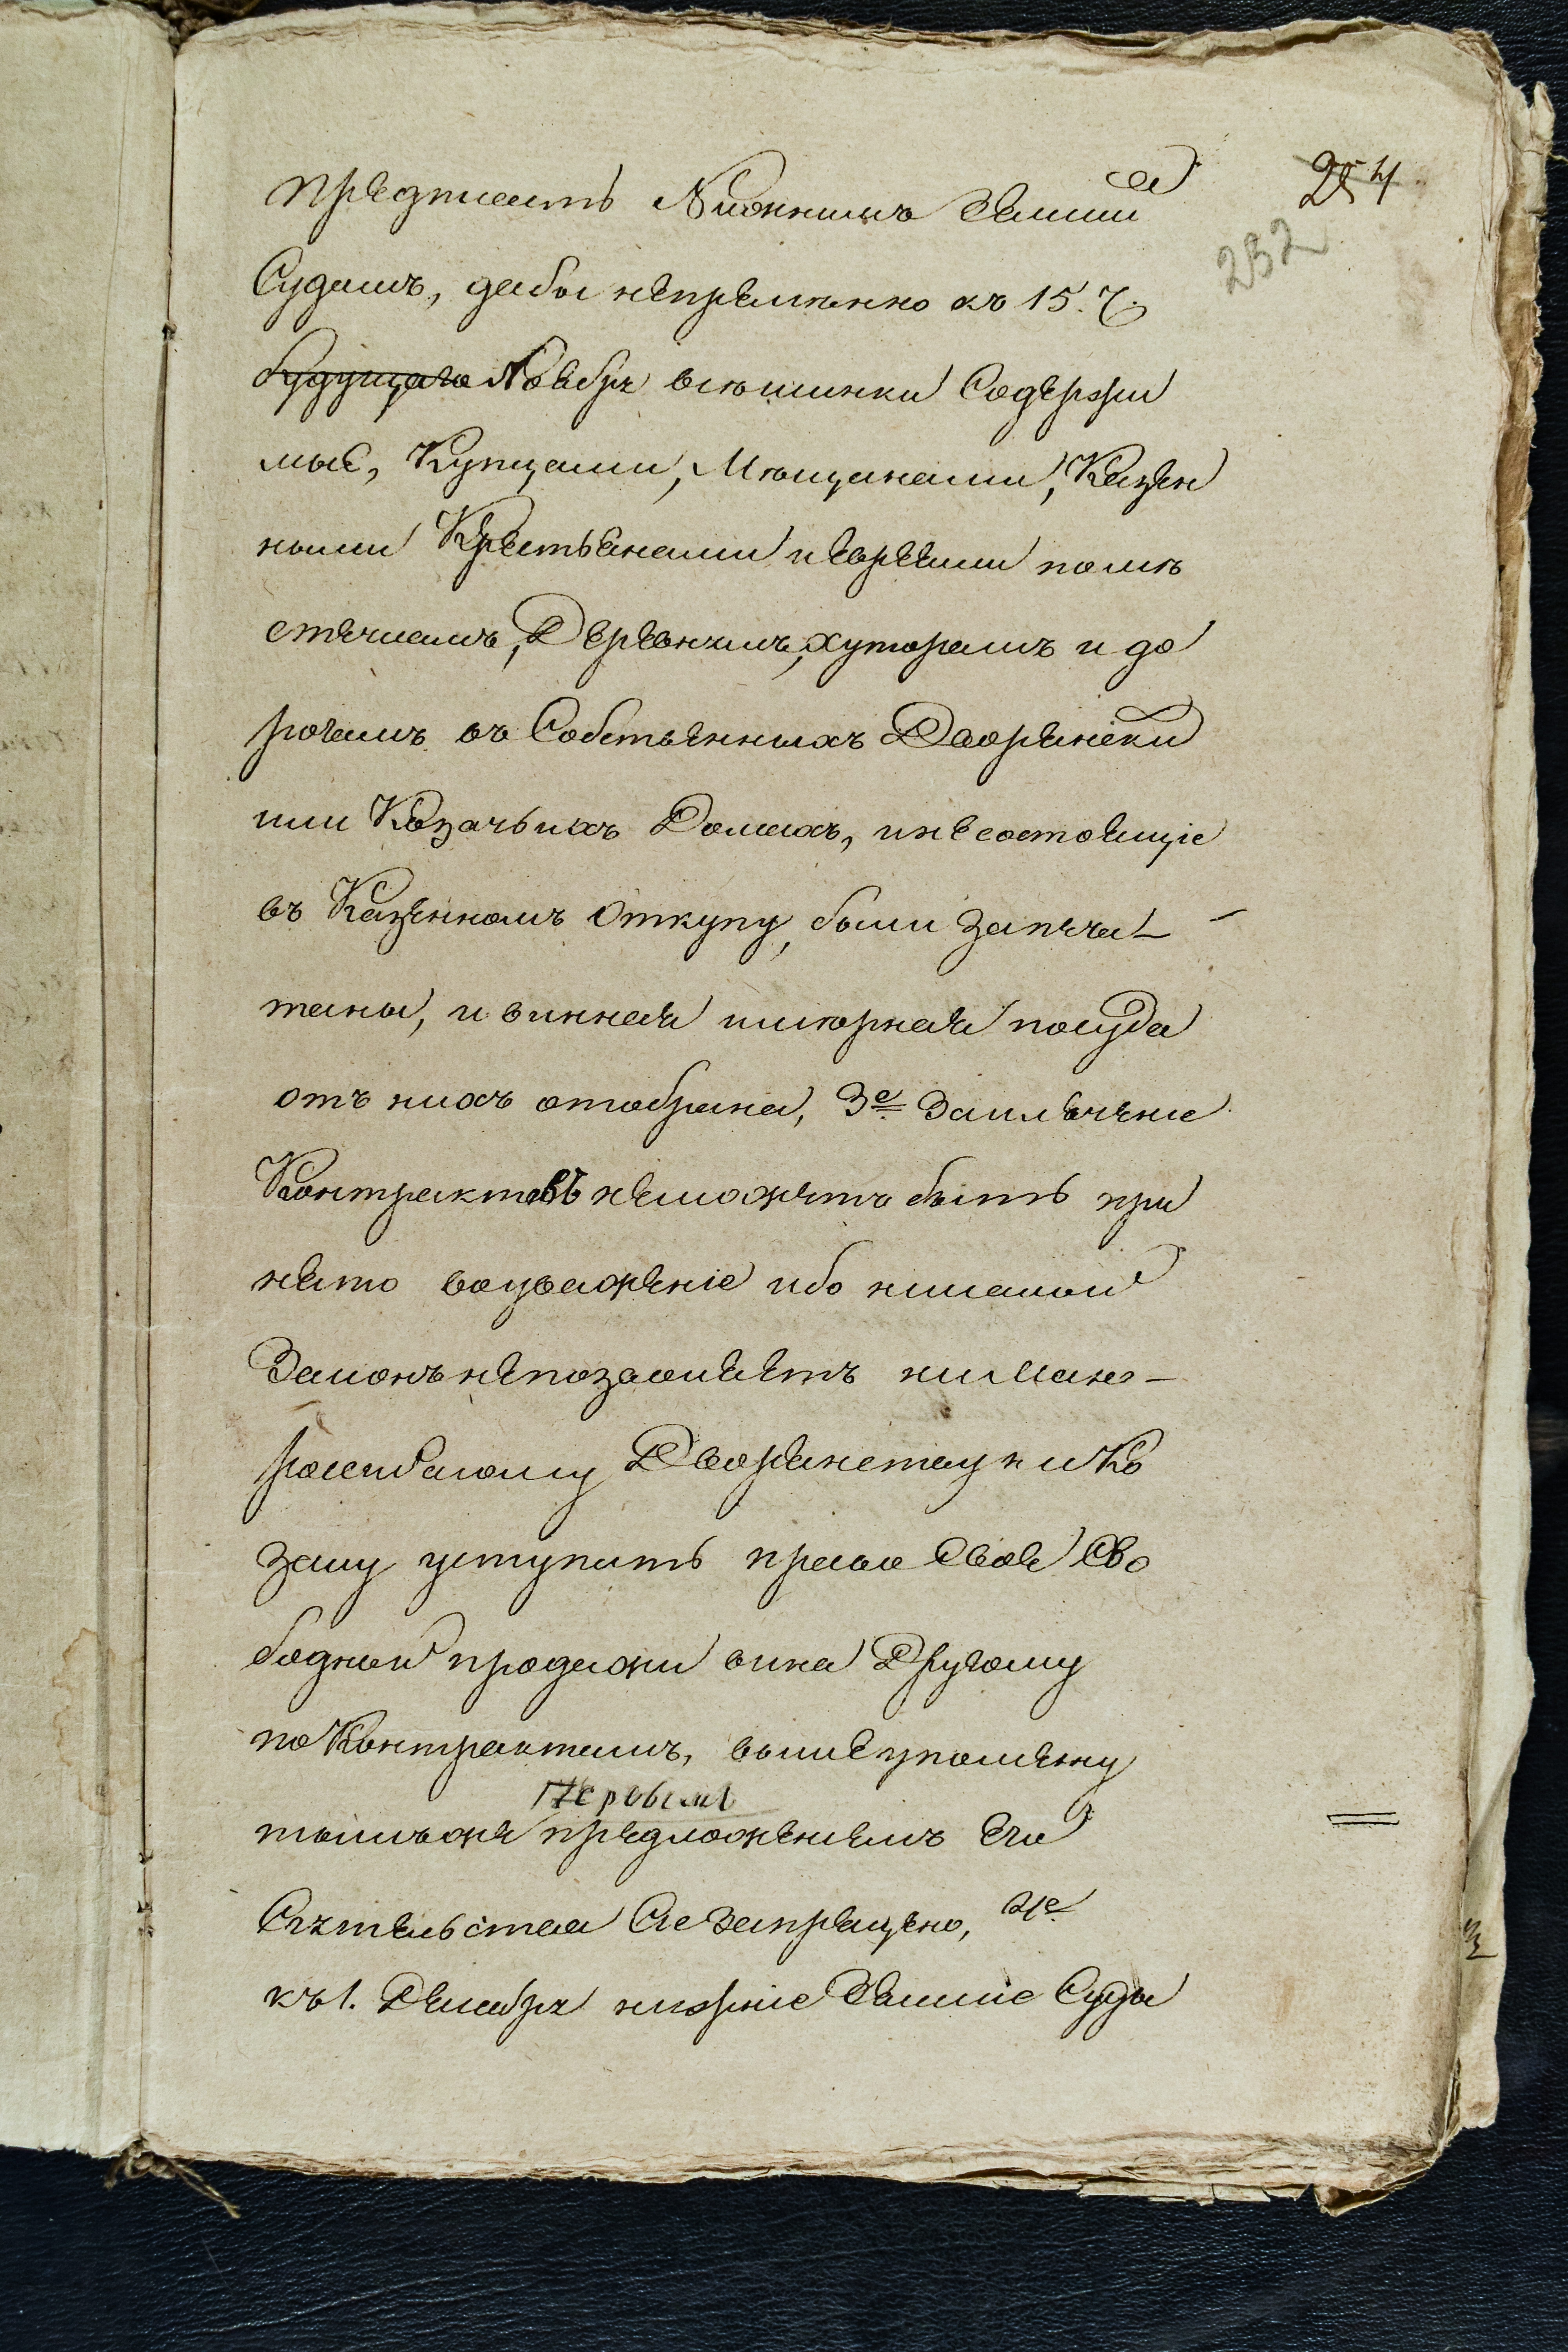 254
232
предписать Нижнимъ Земским
Судамъ, дабы непременно къ 15. Ч.
будущаго Ноября все шинки Содержи
мые, Купцами, Мещанами, Казен
ными Крестьянами и евреями по ме
стечкамъ, Деревнямъ, хуторамъ и до
рогамъ въ Собственныхъ Дворянски
или Козачьихъ Домахъ, и не состоящіе
въ Казенномъ Откупу, были запеча-
таны, и винная и мерная посуда
отъ нихъ отобрана, 3е Заключение
Контрактовъ неможетъ быть при
нято воуважение ибо никакой
Законъ непозволяетъ ни мало-
россійскому Дворянству ни Ко
заку уступить право Своея Сво
бодной продажи вина Другому
по Контрактамъ, вышеупомяну
тымъ же Первым предложениемъ Его
Сиятельства Сие запрещено, 4е
къ 1. Декабря нижние Земские Суды